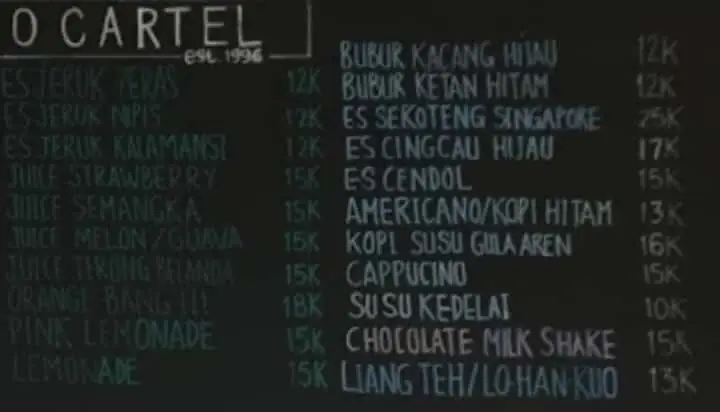 O CARTEL
EST. 1996
ES JERUK PERAS 12K
ES JERUK NIPIS 12K
ES JERUK KALAMANSI 12K
JUICE STRAWBERRY 15K
JUICE SEMANGKA 15K
JUICE MELON/GUAVA 15K
JUICE TERONG BELANDA 15K
ORANGE BANG!!! 18K
PINK LEMONADE 15K
LEMONADE 15K
BUBUR KACANG HIJAU 12K
BUBUR KETAN HITAM 12K
ES SEKOTENG SINGAPORE 25K
ES CINGCAU HIJAU 17K
ES CENDOL 15K
AMERICANO/KOPI HITAM 13K
KOPI SUSU GULA AREN 16K
CAPPUCINO 15K
SUSU KEDELAI 10K
CHOCOLATE MILK SHAKE 15K
LIANG TEH/LO·HAN·KUO 13K